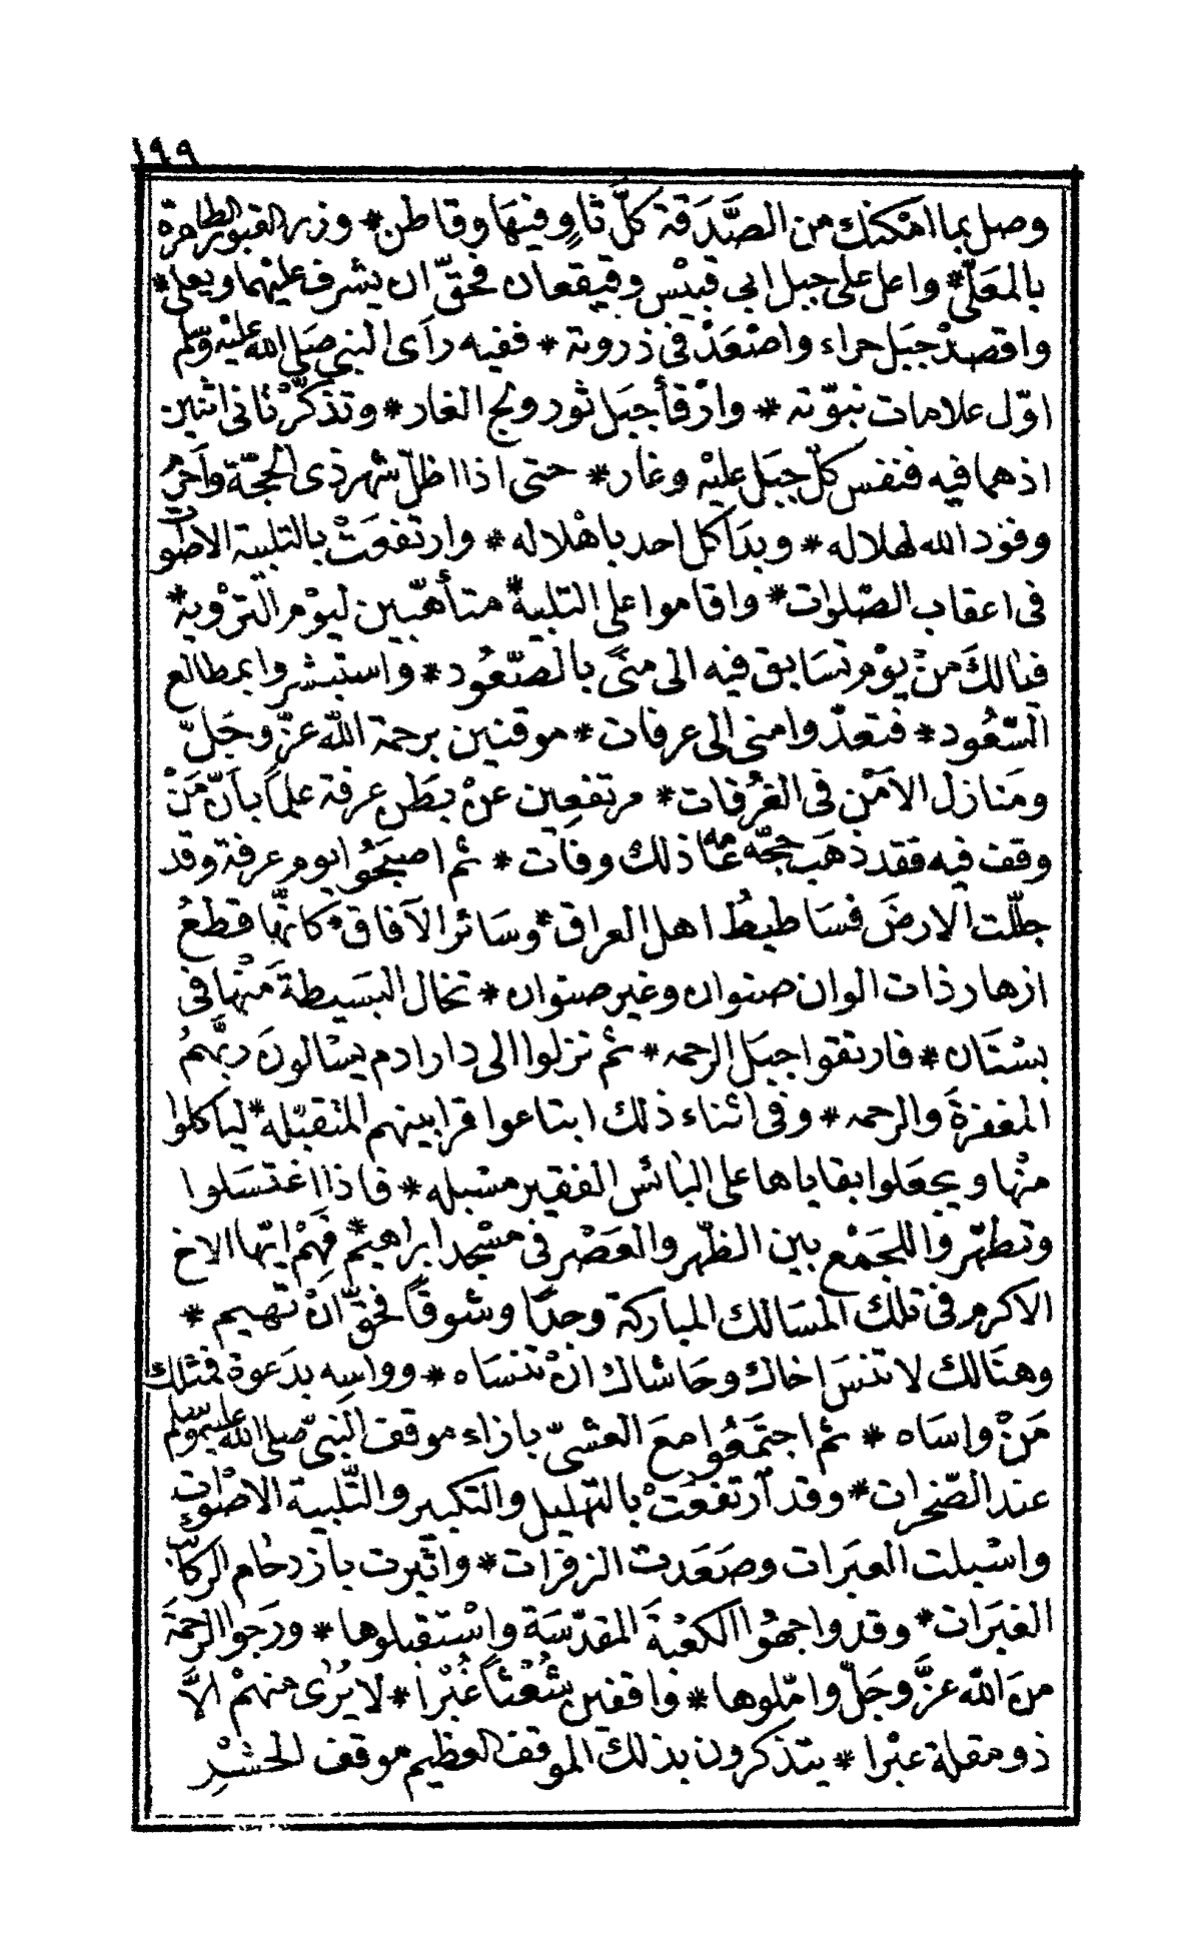 ١٩٩
وصل بما امكنك من الصَّدَقة كلّ ثاوٍ فيهَا وقاطن * وزر القبور الطاهرة
بالمَعَلّى * واعل على جبل ابى قبيْس وقيقعان فحقّ ان يشرف عليْهما ويعلى *
واقصدْ جبَل حراء واصْعَدْ فى ذروته * ففيه رأى النبي صَلى الله عليْه وسّلم
اوّل علامات نبوّته * وارْقأ جبَل ثور ولج الغار * وتذكّرْ ثانى اثنين
اذ هما فيه فنفس كلّ جبَل عليْه وغار * حتى اذا اظلّ شهر ذى الحجّة وآخرُ
وفود الله لهلاله * وبدَا كل احد باهْلاله * وارتفعَتْ بالتلبية الاصْوات
فى اعقاب الصّلوات * واقاموا على التلبية * متأهّبين ليوْم الترْوية *
فيالكَ منْ يوْم تسَابق فيه الى منًى بالصّعُود * واستبْشروا بمطالع
السّعُود * فتعدّوا منى الى عرفات * موقنين برحمة الله عزّ وجَلّ
ومَنازل الاَمْن فى الغرُفات * مرتفعِين عنْ بطَن عرفة علماً بانّ مَنْ
وقف فيه فقد ذهَب حجّه عامه ذلك وفات * ثم اصبَحُوا يوم عرفة وقد
جلّلت الارضَ فسَاطيطُ اهل العراق * وسَائر الآفاق * كانهّا قطعُ
ازهار ذات الوان صنوان وغير صنوان * تخال البسَيطةَ منْها فى
بسْتَان * فارتقوا جبَل الرحمه * ثم نزلوا الى دار ادم يسْالونَ ربّهمُ
المغفرةَ والرحمه * وفى اثناء ذلك ابتاعوا قرابينهم المتقبّله * لياكلوا
منْها ويجعَلوا بقاياها على البائس الفقير مسْبله * فاذا اغتسَلوا
وتطهّروا للجَمْع بين الظّهر والعَصْر فى مسْجد ابراهيم * فَهِمْ ايّها الاخ
الاكرم فى تلك المسَالك المباركة وجدًا وشوقاً فحقّ انْ تهيم *
وهنَالك لا تنسَ اخاك وحَاشاك انْ تنسَاه * وواسِه بدَعوة فمثلك
مَنْ واسَاه * ثم اجتمَعُوا معَ العشىّ بازاء موقف النبىّ صلى الله عليه وسلم
عند الصّخرات * وقد ارتفعَتْ بالتهليل والتكبير والتّلبية الاصْوات
واسْبلت العبَرات وصَعَدت الزفرات * واثيرت بازدحام الركائب
الغبَرات * وقد واجهُوا الكعْبةَ المقدّسَة واسْتقبلوها * ورَجوا الرحمَة
منَ الله عزَّ وجَلّ وامّلوها * واقفين شُعْثاً غُبْرًا * لا يُرى منهمْ الاَّ
ذو مقلة عبْرا * يتذكرون بذلك الموقف العظيم موقف الحشْرِ